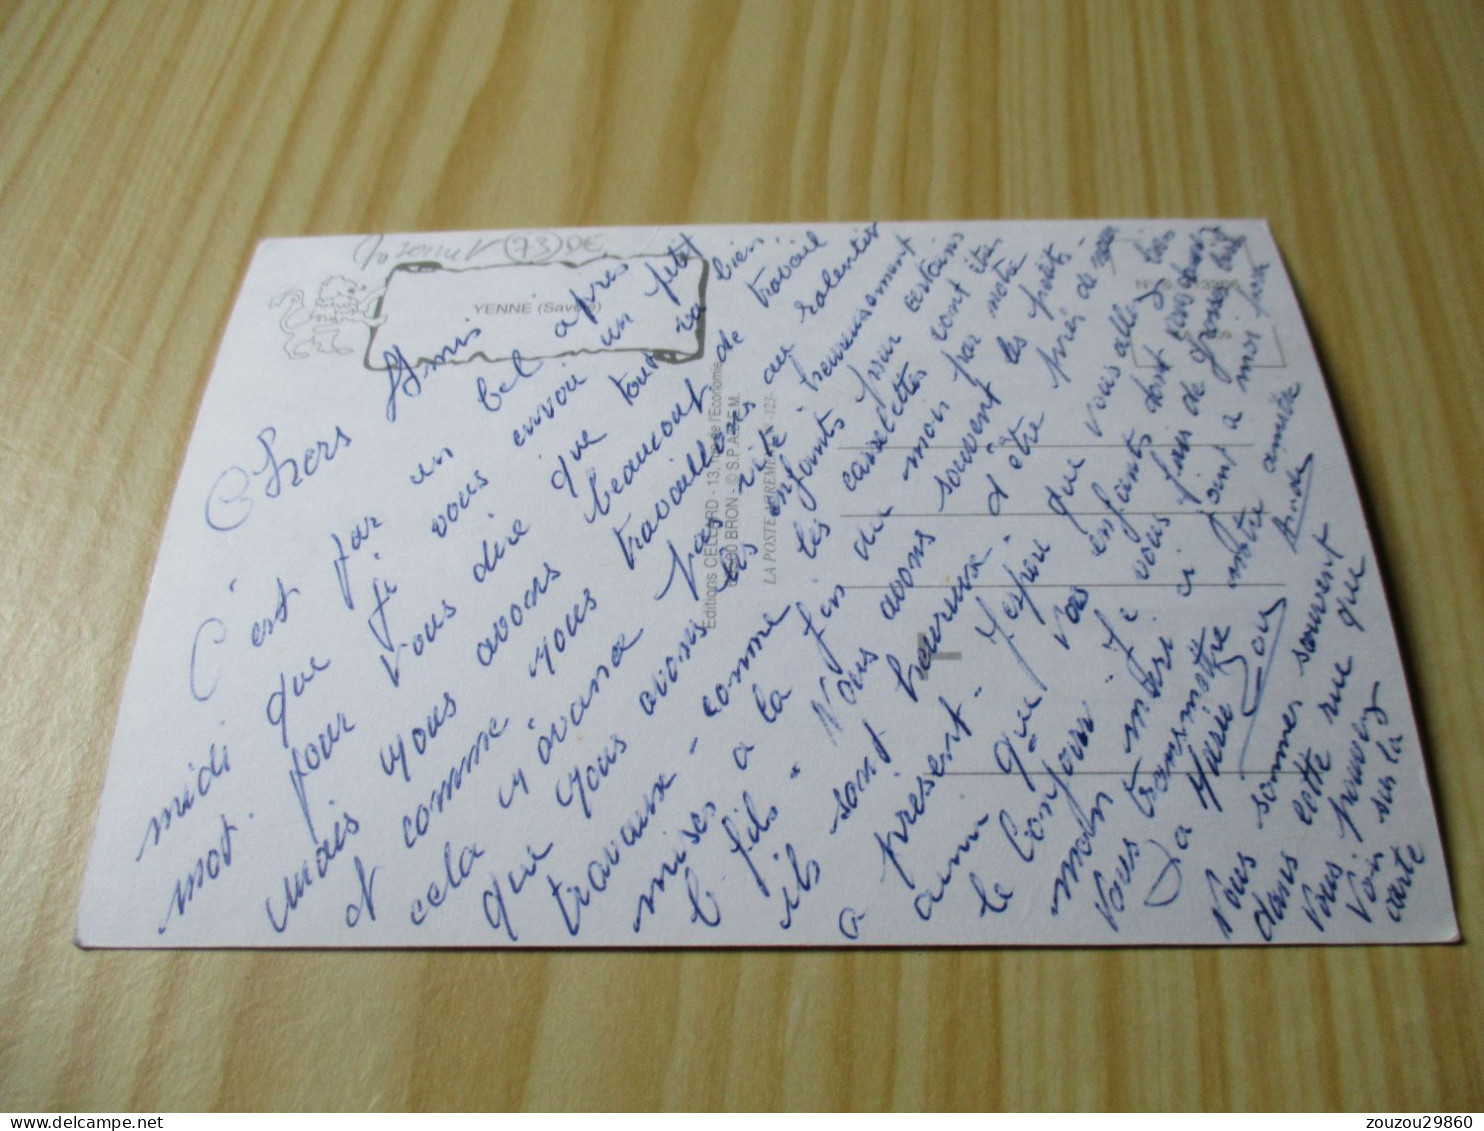 (73) DE
YENNE (Savoie)
Chers Amis
C'est par un bel après
midi que je vous envoie un petit
mot. pour vous dire que tout va bien,
mais nous avons beaucoup de travail
et comme nous travaillons au ralentie
cela n'avance pas vite. heureusement
que nous avons les enfants pour certains
travaux - comme les casselettes sont été
mises a la fin du mois par notre
b. fils - Nous avons souvent les petits
ils sont heureux d'être près de nous
a présent - J'espère que vous allez bien
ainsi que vos enfants dont
le Confoire. Je vous fais de grosses bises
mon mari ci joint a moi pour
vous transmettre notre amitié
La Mariée
Vous sommes souvent
dans cette rue que
vous pouvez
voir sur la
carte
Editions CELLARD - 13, rue de l'Economie
69500 BRON - © S.P.A.D.E.M.
LA POSTE AERIENNE -123-
zouzou29860